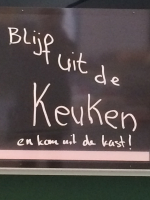 Blijf
uit de
Keuken
en kom uit de kast!